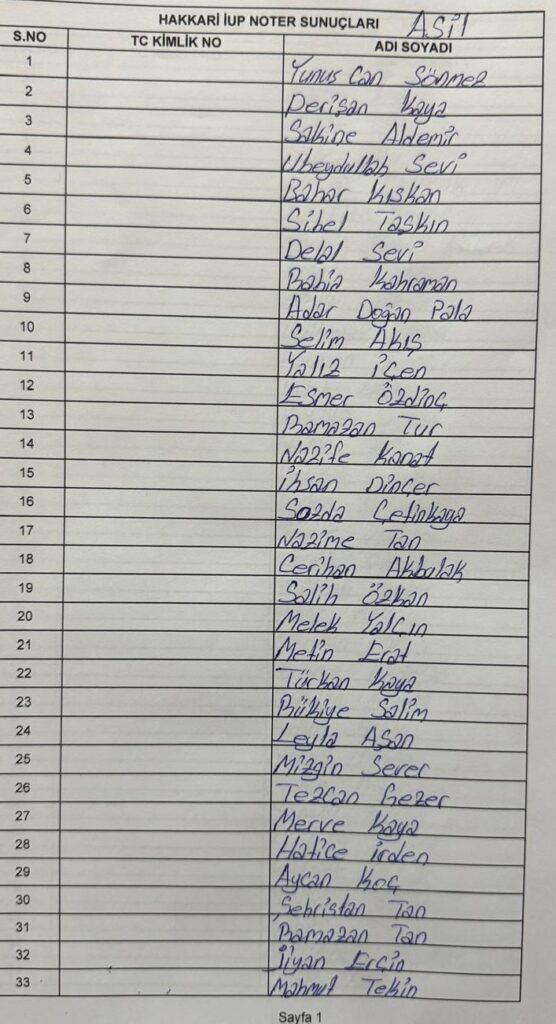 HAKKARİ İUP NOTER SUNUÇLARI ASİL
S.NO TC KİMLİK NO ADI SOYADI
1 Yunus Can Sönmez
2 Perişan Kaya
3 Sakine Aldemir
4 Ubeydullah Sevi
5 Bahar Kışkan
6 Sibel Taşkın
7 Delal Sevi
8 Rabia Kahraman
9 Adar Doğan Pala
10 Selim Akış
11 Yalız İçen
12 Esmer Özdinç
13 Ramazan Tur
14 Nazife Kanat
15 İhsan Dinçer
16 Sozda Çetinkaya
17 Nazime Tan
18 Cerihan Akbulak
19 Salih Özkan
20 Melek Yalçın
21 Metin Erat
22 Türkan Kaya
23 Rükiye Salim
24 Leyla Aşan
25 Mizgin Sever
26 Tezcan Gezer
27 Merve Kaya
28 Hatice İrden
29 Aycan Koç
30 Şehristan Tan
31 Ramazan Tan
32 Jiyan Erçin
33 Mahmut Tekin
Sayfa 1